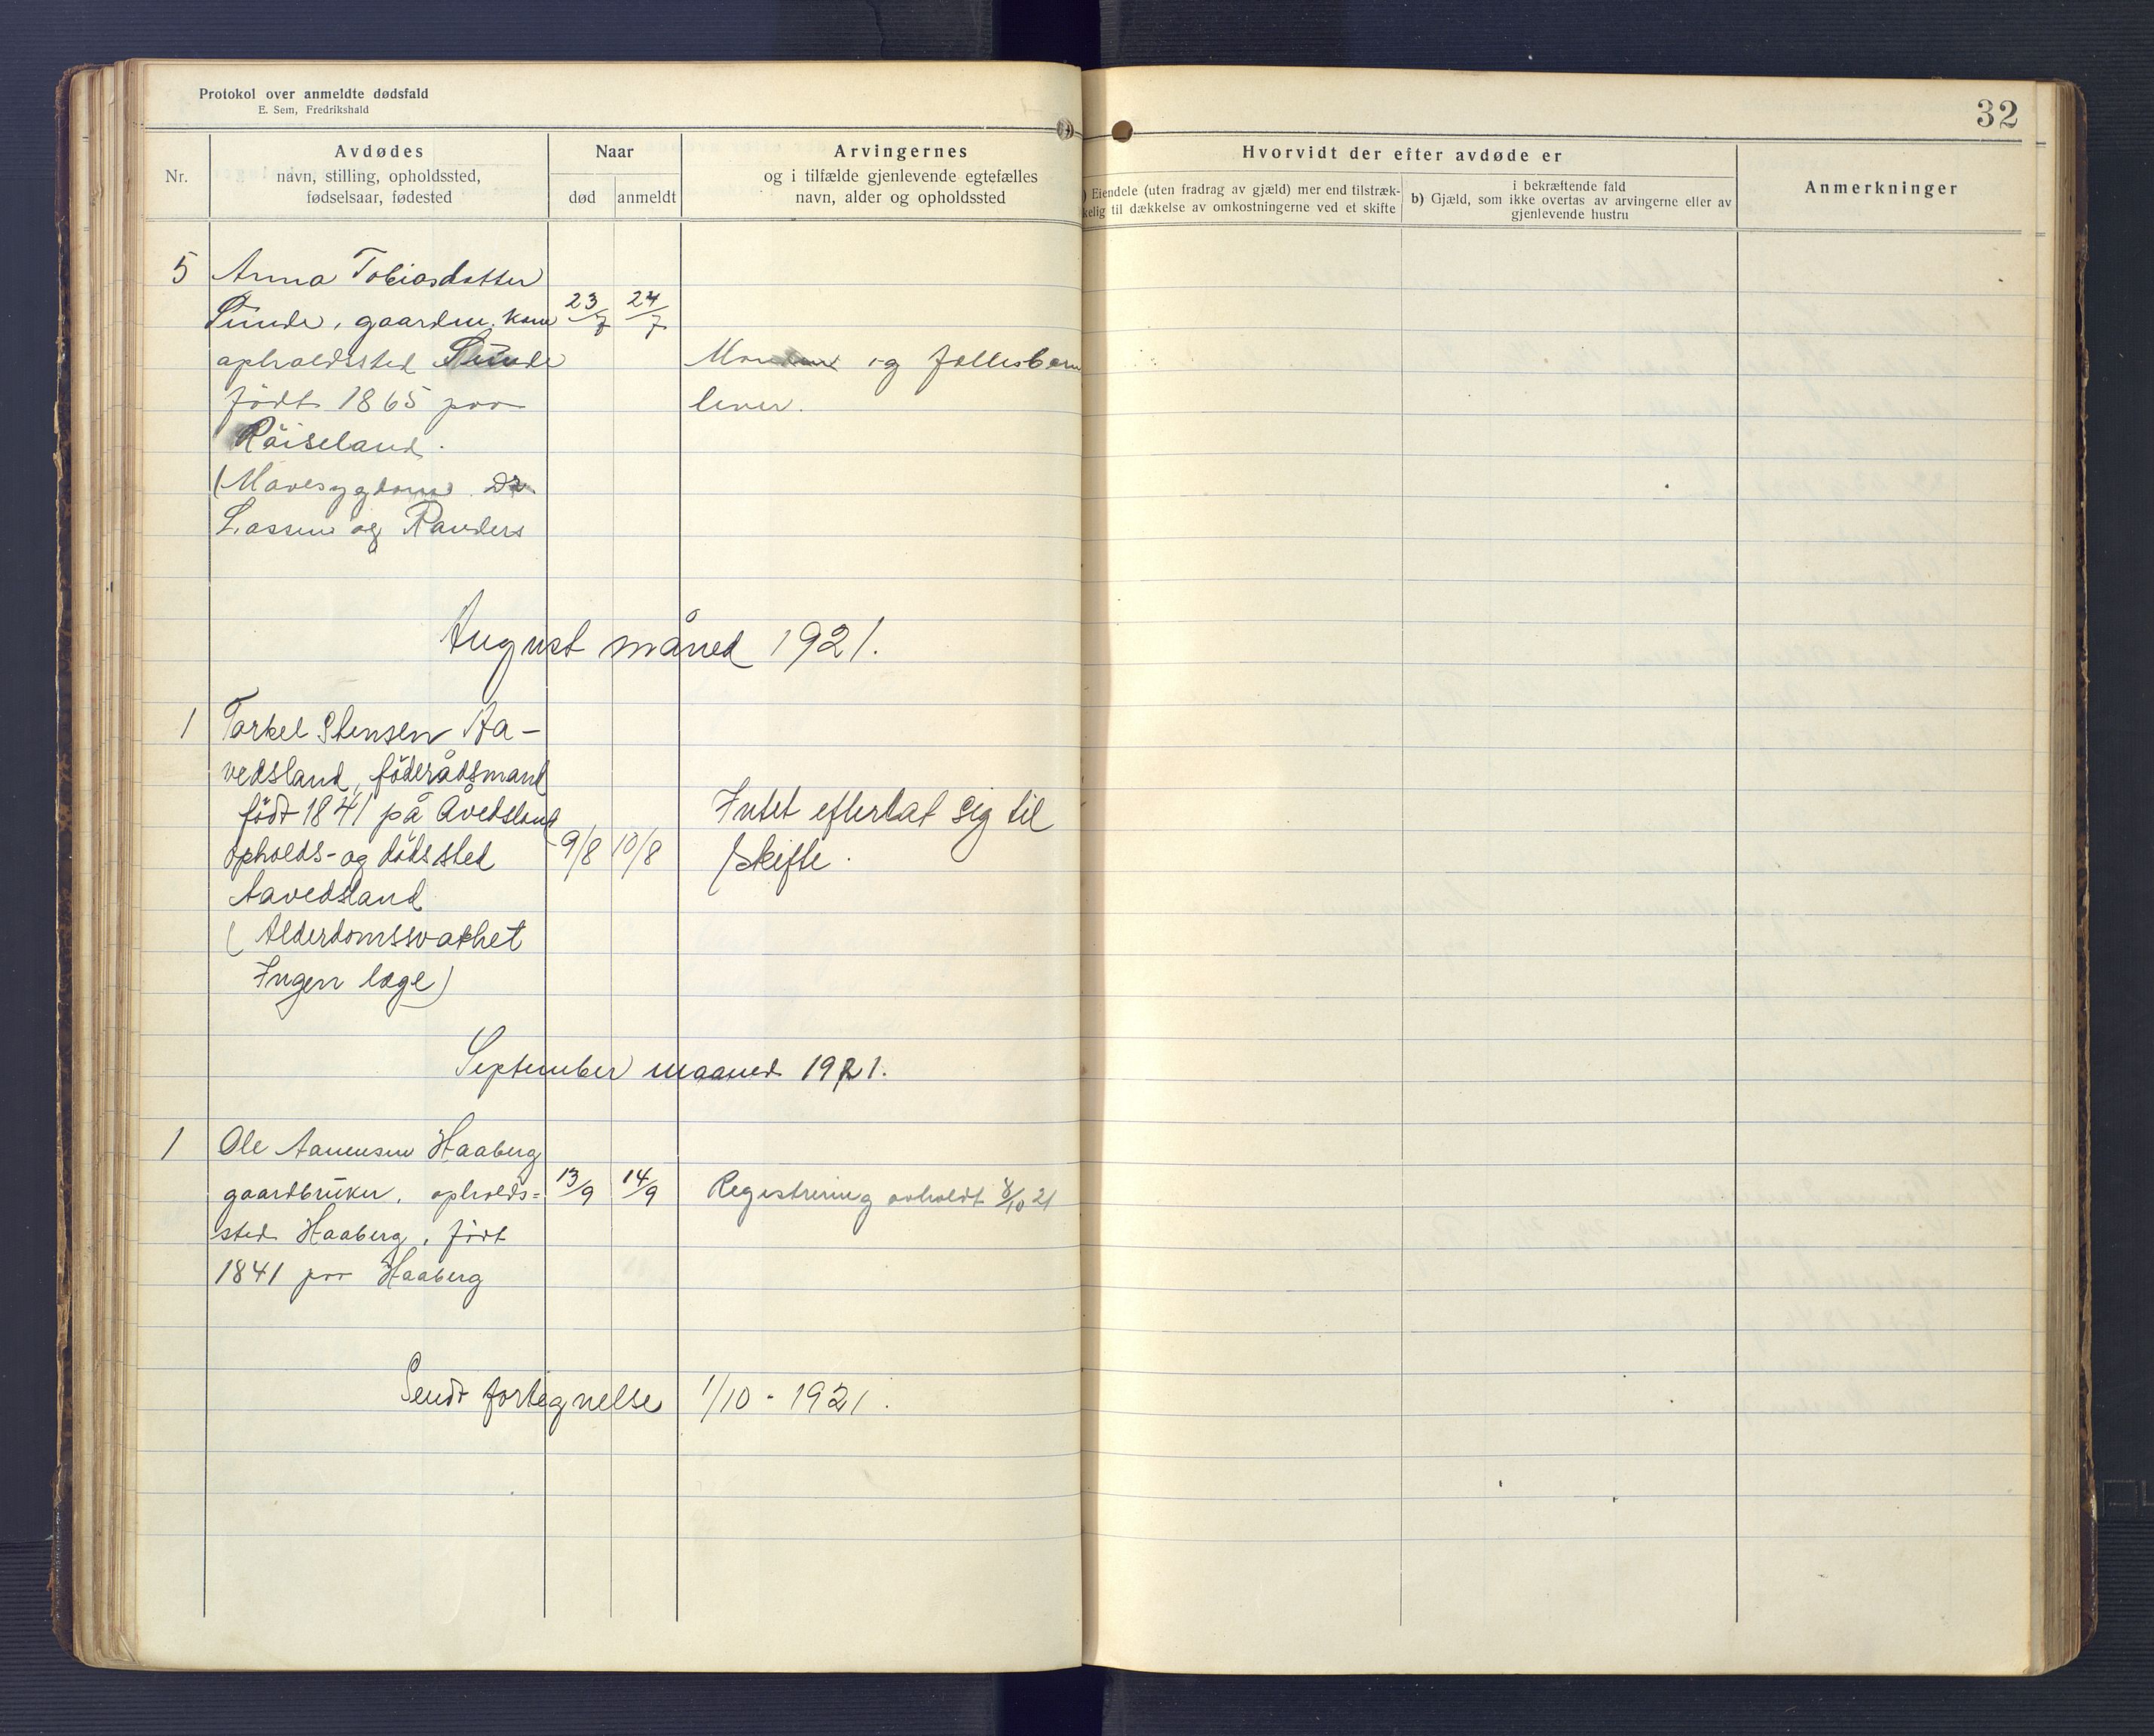 Protokol over anmeldte dødsfald
E. Sem, Fredrikshald
32
Nr.
Avdødes
navn, stilling, opholdssted,
fødselsaar, fødested
Naar
død
anmeldt
Arvingernes
og i tilfælde gjenlevende egtefælles
navn, alder og opholdssted
Hvorvidt der efter avdøde er
) Eiendele (uten fradrag av gjæld) mer end tilstræk-
kelig til dækkelse av omkostningerne ved et skifte
i bekræftende fald
b) Gjæld, som ikke overtas av arvingerne eller av
gjenlevende hustru
Anmerkninger
5 Anna Tobiasdatter
Sunde, gaardm. kone 23/7 24/7
opholdssted Sunde
født 1865 paa
Röiseland.
(Mavesygdom. Dr.
Lassen og Randers
og fellesbarn
lever.
August måned 1921.
1 Torkel Stensen Aa-
vedsland, föderådsmand
födt 1841 på Åvedsland
opholds- og dödssted 9/8 10/8
Aavedsland
(Alderdomssvakhet
Ingen læge)
Intet efterlat sig til
skifte.
September maaned 1921.
1 Ole Aanensen Haaberg
gaardbruker, opholds= 13/9 14/9
sted Haaberg, født
1841 paa Haaberg
Registrering avholdt 8/10 21
Sendt fortegnelse 1/10 - 1921.